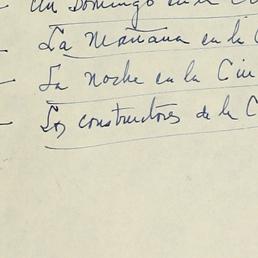 - Un Domingo en la Ci
- La Mañana en la C
- La noche en la Ciu
- Los constructores de la C